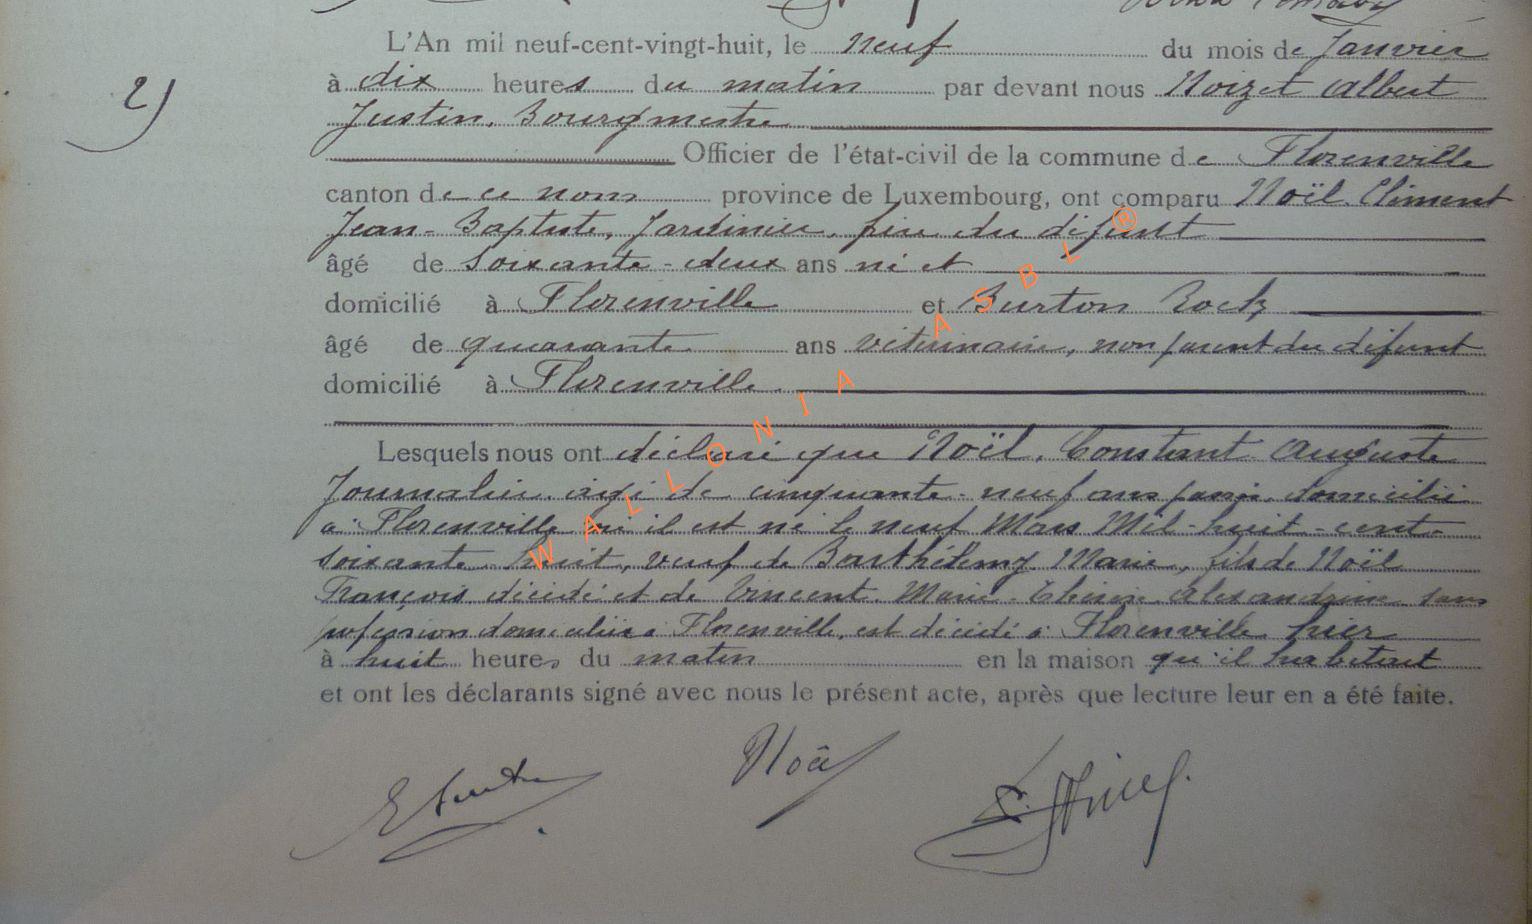 L'An mil neuf-cent-vingt-huit, le neuf du mois de Janvier
2)
à dix heures du matin par devant nous Noizet Albert
Justin, Bourgmestre
Officier de l'état-civil de la commune de Florenville
canton de ce nom province de Luxembourg, ont comparu Noël, Clément
Jean-Baptiste, Jardinier, frère du défunt
âgé de soixante-deux ans né et
domicilié à Florenville et Burton
âgé de quarante ans vétérinaire, non parent du défunt
domicilié à Florenville.
Lesquels nous ont déclaré que Noël, Constant Auguste
Journalier, âgé de cinquante-neuf ans passés domicilié
à Florenville où il est né le neuf Mars Mil-huit-cent-
soixante huit, veuf de Barthélemy Marie, fils de Noël
François décédé et de Vincent Marie-Thérèse Alexandrine sans
profession domiciliée à Florenville, est décédé à Florenville hier
à huit heures du matin en la maison qu'il habitait
et ont les déclarants signé avec nous le présent acte, après que lecture leur en a été faite.
Noël
WALLONIA ASBL ®